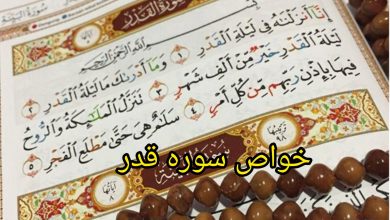 سُورَةُ القَدْرِ
بِسْمِ اللَّهِ الرَّحْمَٰنِ الرَّحِيمِ
إِنَّا أَنزَلْنَٰهُ فِي لَيْلَةِ الْقَدْرِ ١ وَمَا أَدْرَىٰكَ مَا لَيْلَةُ الْقَدْرِ ٢
لَيْلَةُ الْقَدْرِ خَيْرٌ مِّنْ أَلْفِ شَهْرٍ ٣ تَنَزَّلُ الْمَلَٰٓئِكَةُ وَالرُّوحُ
فِيهَا بِإِذْنِ رَبِّهِم مِّن كُلِّ أَمْرٍ ٤ سَلَٰمٌ هِيَ حَتَّىٰ مَطْلَعِ الْفَجْرِ ٥
خواص سوره قدر